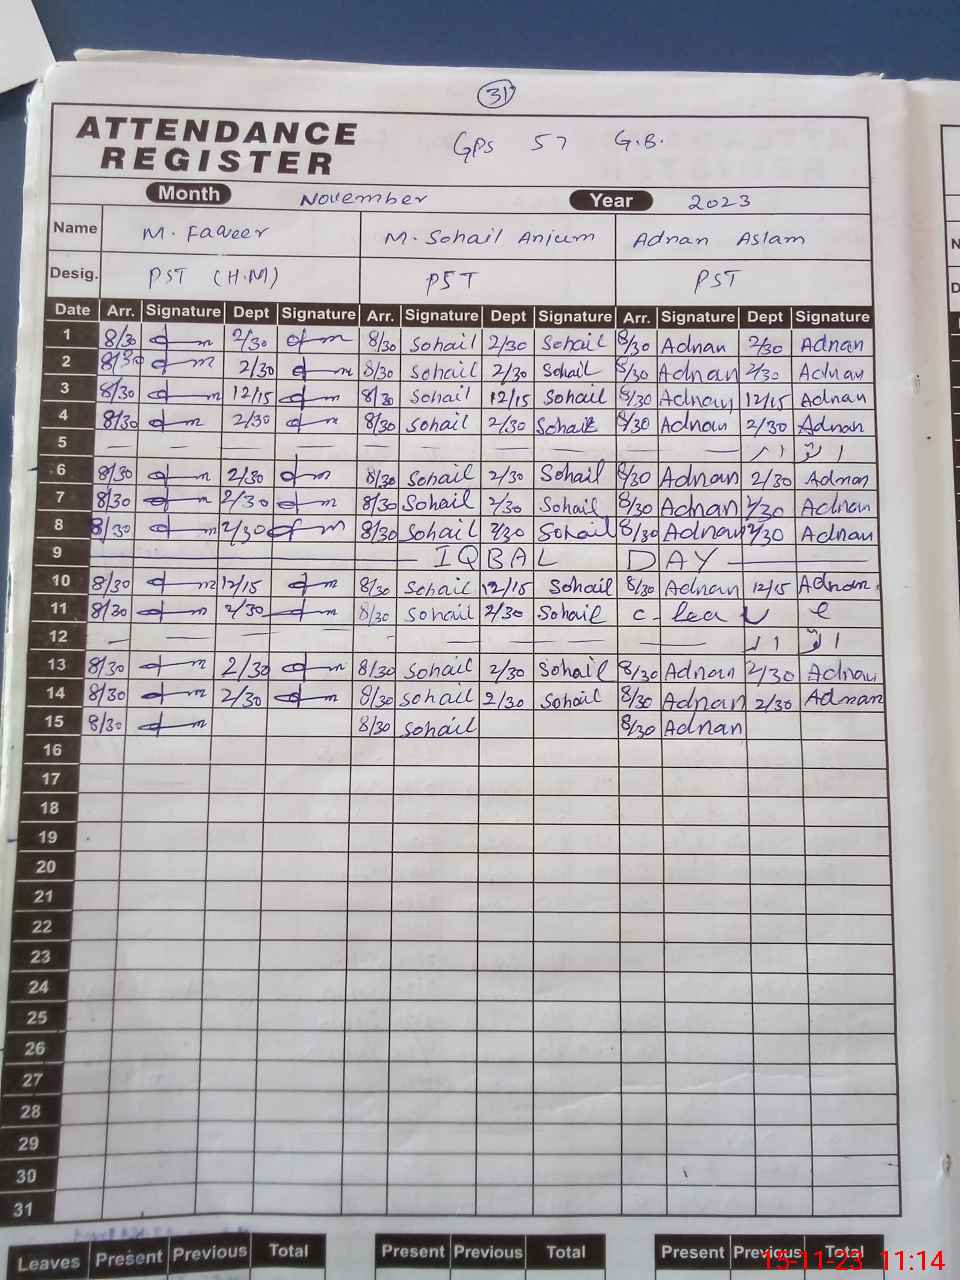 31
ATTENDANCE
REGISTER
GPS 57 G.B.
Month November Year 2023
Name M. Faqeer M. Sohail Anjum Adnan Aslam
Desig. PST (H.M) PST PST
Date Arr. Signature Dept Signature Arr. Signature Dept Signature Arr. Signature Dept Signature
1 8/30 2/30 8/30 Sohail 2/30 Sohail 8/30 Adnan 2/30 Adnan
2 8/30 2/30 8/30 Sohail 2/30 Sohail 8/30 Adnan 2/30 Adnan
3 8/30 12/15 8/30 Sohail 12/15 Sohail 8/30 Adnan 12/15 Adnan
4 8/30 2/30 8/30 Sohail 2/30 Sohail 8/30 Adnan 2/30 Adnan
5
6 8/30 2/30 8/30 Sohail 2/30 Sohail 8/30 Adnan 2/30 Adnan
7 8/30 2/30 8/30 Sohail 2/30 Sohail 8/30 Adnan 2/30 Adnan
8 8/30 2/30 8/30 Sohail 2/30 Sohail 8/30 Adnan 2/30 Adnan
9 IQBAL DAY
10 8/30 12/15 8/30 Sohail 12/15 Sohail 8/30 Adnan 12/15 Adnan
11 8/30 2/30 8/30 Sohail 2/30 Sohail c- leave
12
13 8/30 2/30 8/30 Sohail 2/30 Sohail 8/30 Adnan 2/30 Adnan
14 8/30 2/30 8/30 Sohail 2/30 Sohail 8/30 Adnan 2/30 Adnan
15 8/30 8/30 Sohail 8/30 Adnan
16
17
18
19
20
21
22
23
24
25
26
27
28
29
30
31
Leaves Present Previous Total Present Previous Total Present Previous Total
15-11-23 11:14